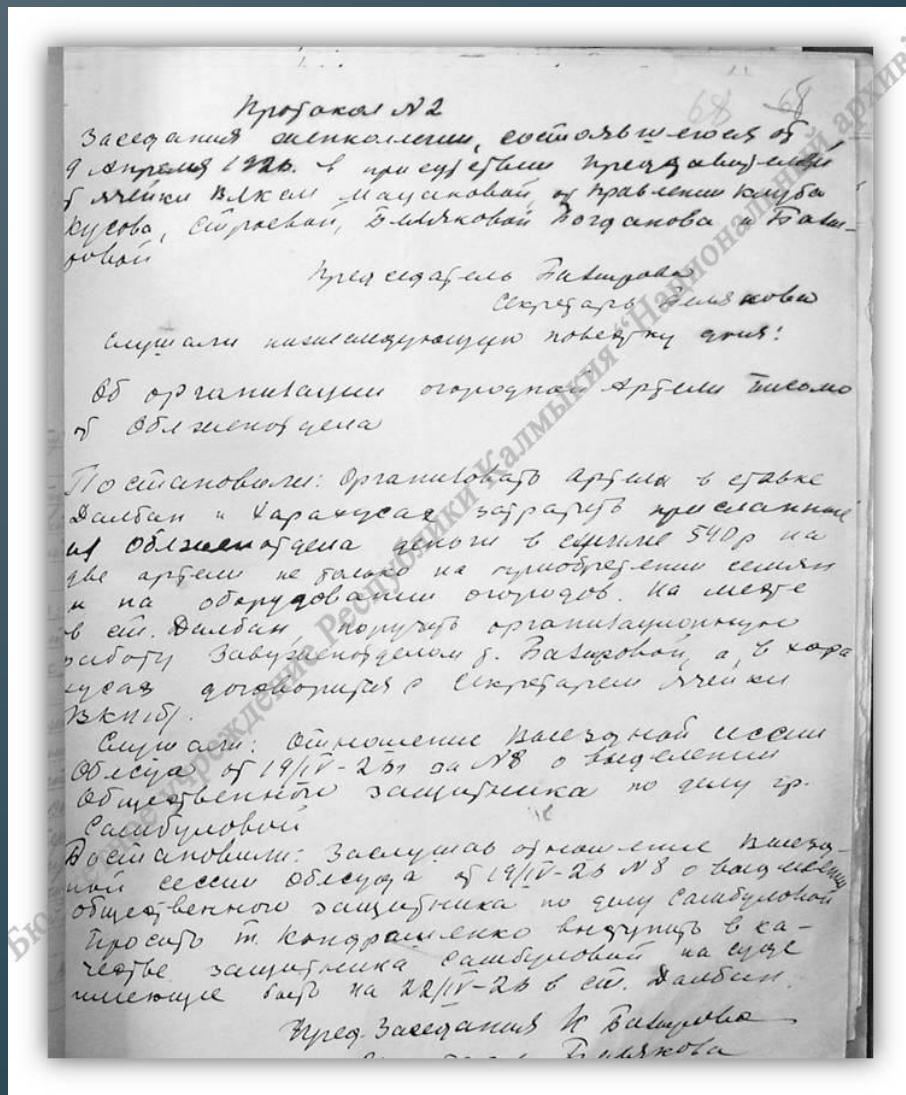 68 68
Протокол N2
Заседания женколлегии, состоявшегося от
9 Апреля 1926. в присутствии представителей
от ячейки ВЛКСМ Мацаковой, от правлении клуба
Кусова, Строевой, Богданова и Бати-
ровой
Председатель Батырова
Секретарь
Слушали нижеследующую повестку дня:
Об организации огородной Артели письмо
от Облженотдела
Постановили: Организовать артели в ставке
Далбан и Харахусах затратить присланные
из Облженотдела деньги в сумме 540р на
две артели не только на приобретении семян
и на оборудовании огородов. На месте
в ст. Далбан, поручить организационную
работу Завуженотделом т. Батыровой, а, в хара
хусах договорится с Секретарем ячейки
ВКП(б).
Слушали: Отношение Выездной сессии
Облсуда от 19/IV-26г за N8 о выделении
Общественного защитника по делу гр.
Самбуловой
Постановили: Заслушав отношение Выезд-
ной сессии Облсуда от 19/IV-26 N8 о выделении
общественного защитника по делу Самбуловой
Просить т. Кондрашенко выступить в ка-
честве защитника Самбуловой на суде
имеющие быть на 22/IV-26 в ст. Далбан.
Пред. Заседания К Батырова
Бюджетное учреждение Республики Калмыкия "Национальный архив"